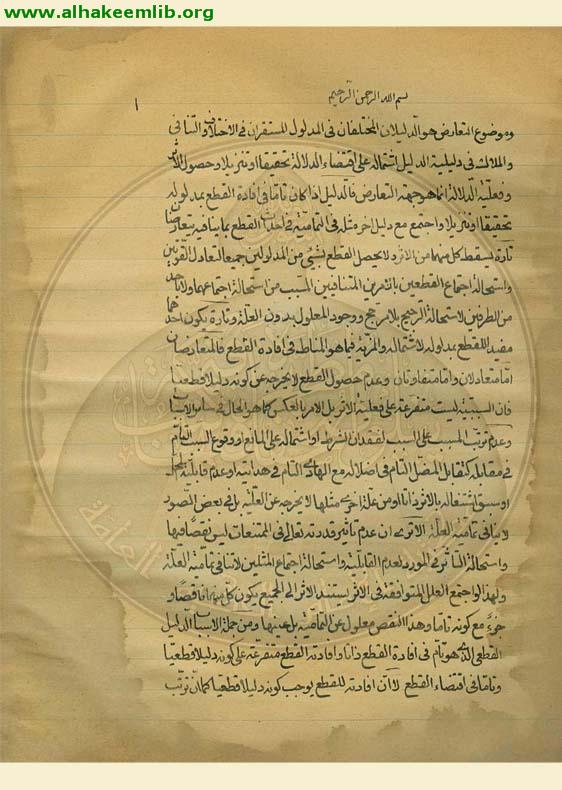 www.alhakeemlib.org
بسم الله الرحمن الرحيم
١
وموضوع التعارض هو الدليلان المختلفان في المدلول المستقران في الاختلاف والتنافي
والملاك في دليلية الدليل اشتماله على اقتضاء الدلالة تحقيقا او تنزيلا وحصول الاثر
وفعلية الدلالة انما هو جهة التعارض فالدليل اذا كان تاما في افادة القطع بمدلوله
تحقيقا او تنزيلا واجتمع مع دليل اخر مثله في التمامية في احداث القطع بما ينافيه تعارضا
تارة يسقط كل منهما من الاثر ولا يحصل القطع بشئ من المدلولين جميعا لتعادل القوتين
واستحالة اجتماع القطعين بالامرين المتنافيين المسبب من استحالة اجتماعهما ولا باحد
من الطرفين لاستحالة الترجيح بلا مرجح ووجود المعلول بدون العلة وتارة يكون احدهما
مفيد للقطع بمدلوله لاشتماله والمزية فيما هو المناط في افادة القطع فالمتعارضان
امّا متعادلان وامّا متفاوتان وعدم حصول القطع لا يخرجه عن كونه دليلا قطعيا
فان السببية ليست متفرعة على فعلية الاثر بل الامر بالعكس كما هو الحال في سائر الاسباب
وعدم ترتب المسبب على السبب لفقدان لشرط او اشتماله على المانع او وقوع السبب التام
في مقابله كتقابل المضل التام في اضلاله مع الهادي التام في هدايته او عدم قابلية المحل
او سبق اشتغاله بالاثر ذاتا او من علة اخرى مثلها لا يخرجه عن العلية بل في بعض الصور
لا ينافي تمامية العلة الا ترى ان عدم تاثير قدرته تعالى في الممتنعات ليس نقصا فيها
واستحالة التاثر في المورد لعدم القابلية واستحالة اجتماع المثلين لا تنافي تمامية العلة
ولهذا لو اجتمع العلل المتوافقة في الاثر يستند الاثر الى الجميع يكون كل منها ناقصا و
جزء مع كونه تاما وهذا النقص معلول عن التمامية بل عينها ومن جملة الاسباب الدليل
القطعي الذي هو تام في افادة القطع ذاتا وافادته القطع متفرعة على كونه دليلا قطعيا
وتاما في اقتضاء القطع لا ان افادته للقطع يوجب كونه دليلا قطعيا كما ان ترتب